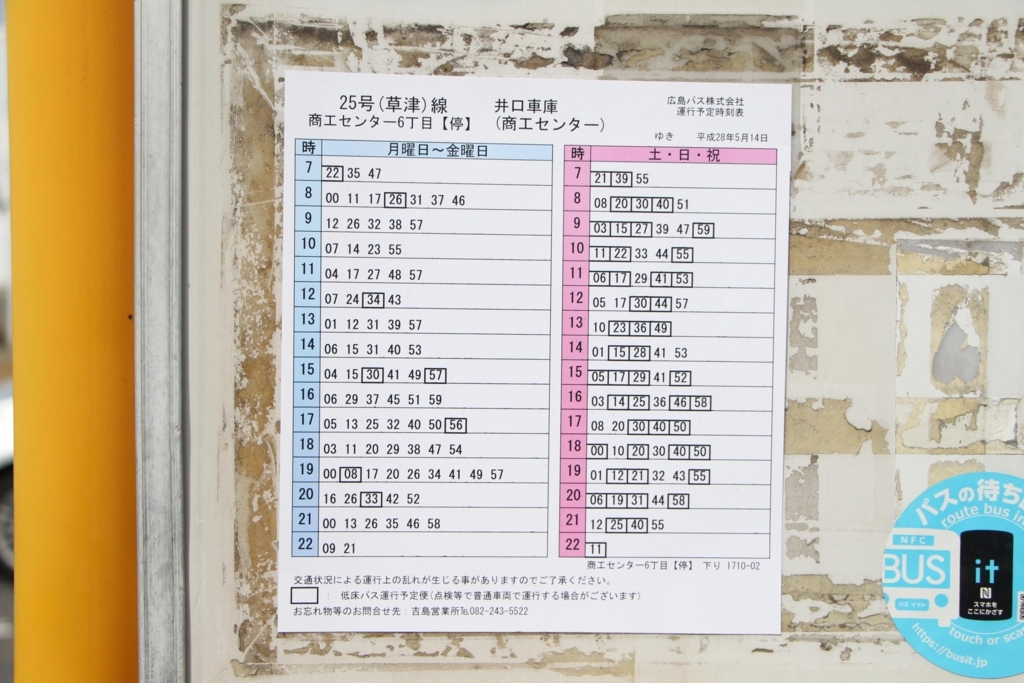 25号(草津)線 井口車庫
商工センター6丁目【停】 (商工センター)
広島バス株式会社
運行予定時刻表
ゆき 平成28年5月14日
時 月曜日～金曜日
7 22 35 47
8 00 11 17 26 31 37 46
9 12 26 32 38 57
10 07 14 23 55
11 04 17 27 48 57
12 07 24 34 43
13 01 12 31 39 57
14 06 15 31 40 53
15 04 15 30 41 49 57
16 06 29 37 45 51 59
17 05 13 25 32 40 50 56
18 03 11 20 29 38 47 54
19 00 08 17 20 26 34 41 49 57
20 16 26 33 42 52
21 00 13 26 35 46 58
22 09 21
時 土・日・祝
7 21 39 55
8 08 20 30 40 51
9 03 15 27 39 47 59
10 11 22 33 44 55
11 06 17 29 41 53
12 05 17 30 44 57
13 10 23 36 49
14 01 15 28 41 53
15 05 17 29 41 52
16 03 14 25 36 46 58
17 08 20 30 40 50
18 00 10 20 30 40 50
19 01 12 21 32 43 55
20 06 19 31 44 58
21 12 25 40 55
22 11
商工センター6丁目【停】 下り 1710-02
交通状況による運行上の乱れが生じる事がありますのでご了承ください。
： 低床バス運行予定便(点検等で普通車両で運行する場合がございます)
お忘れ物等のお問合せ先：吉島営業所℡082-243-5522
バスの待ち
route bus in
NFC
BUS
バスイット
it
スマホを
ここにかざす
touch or sca
https://busit.jp